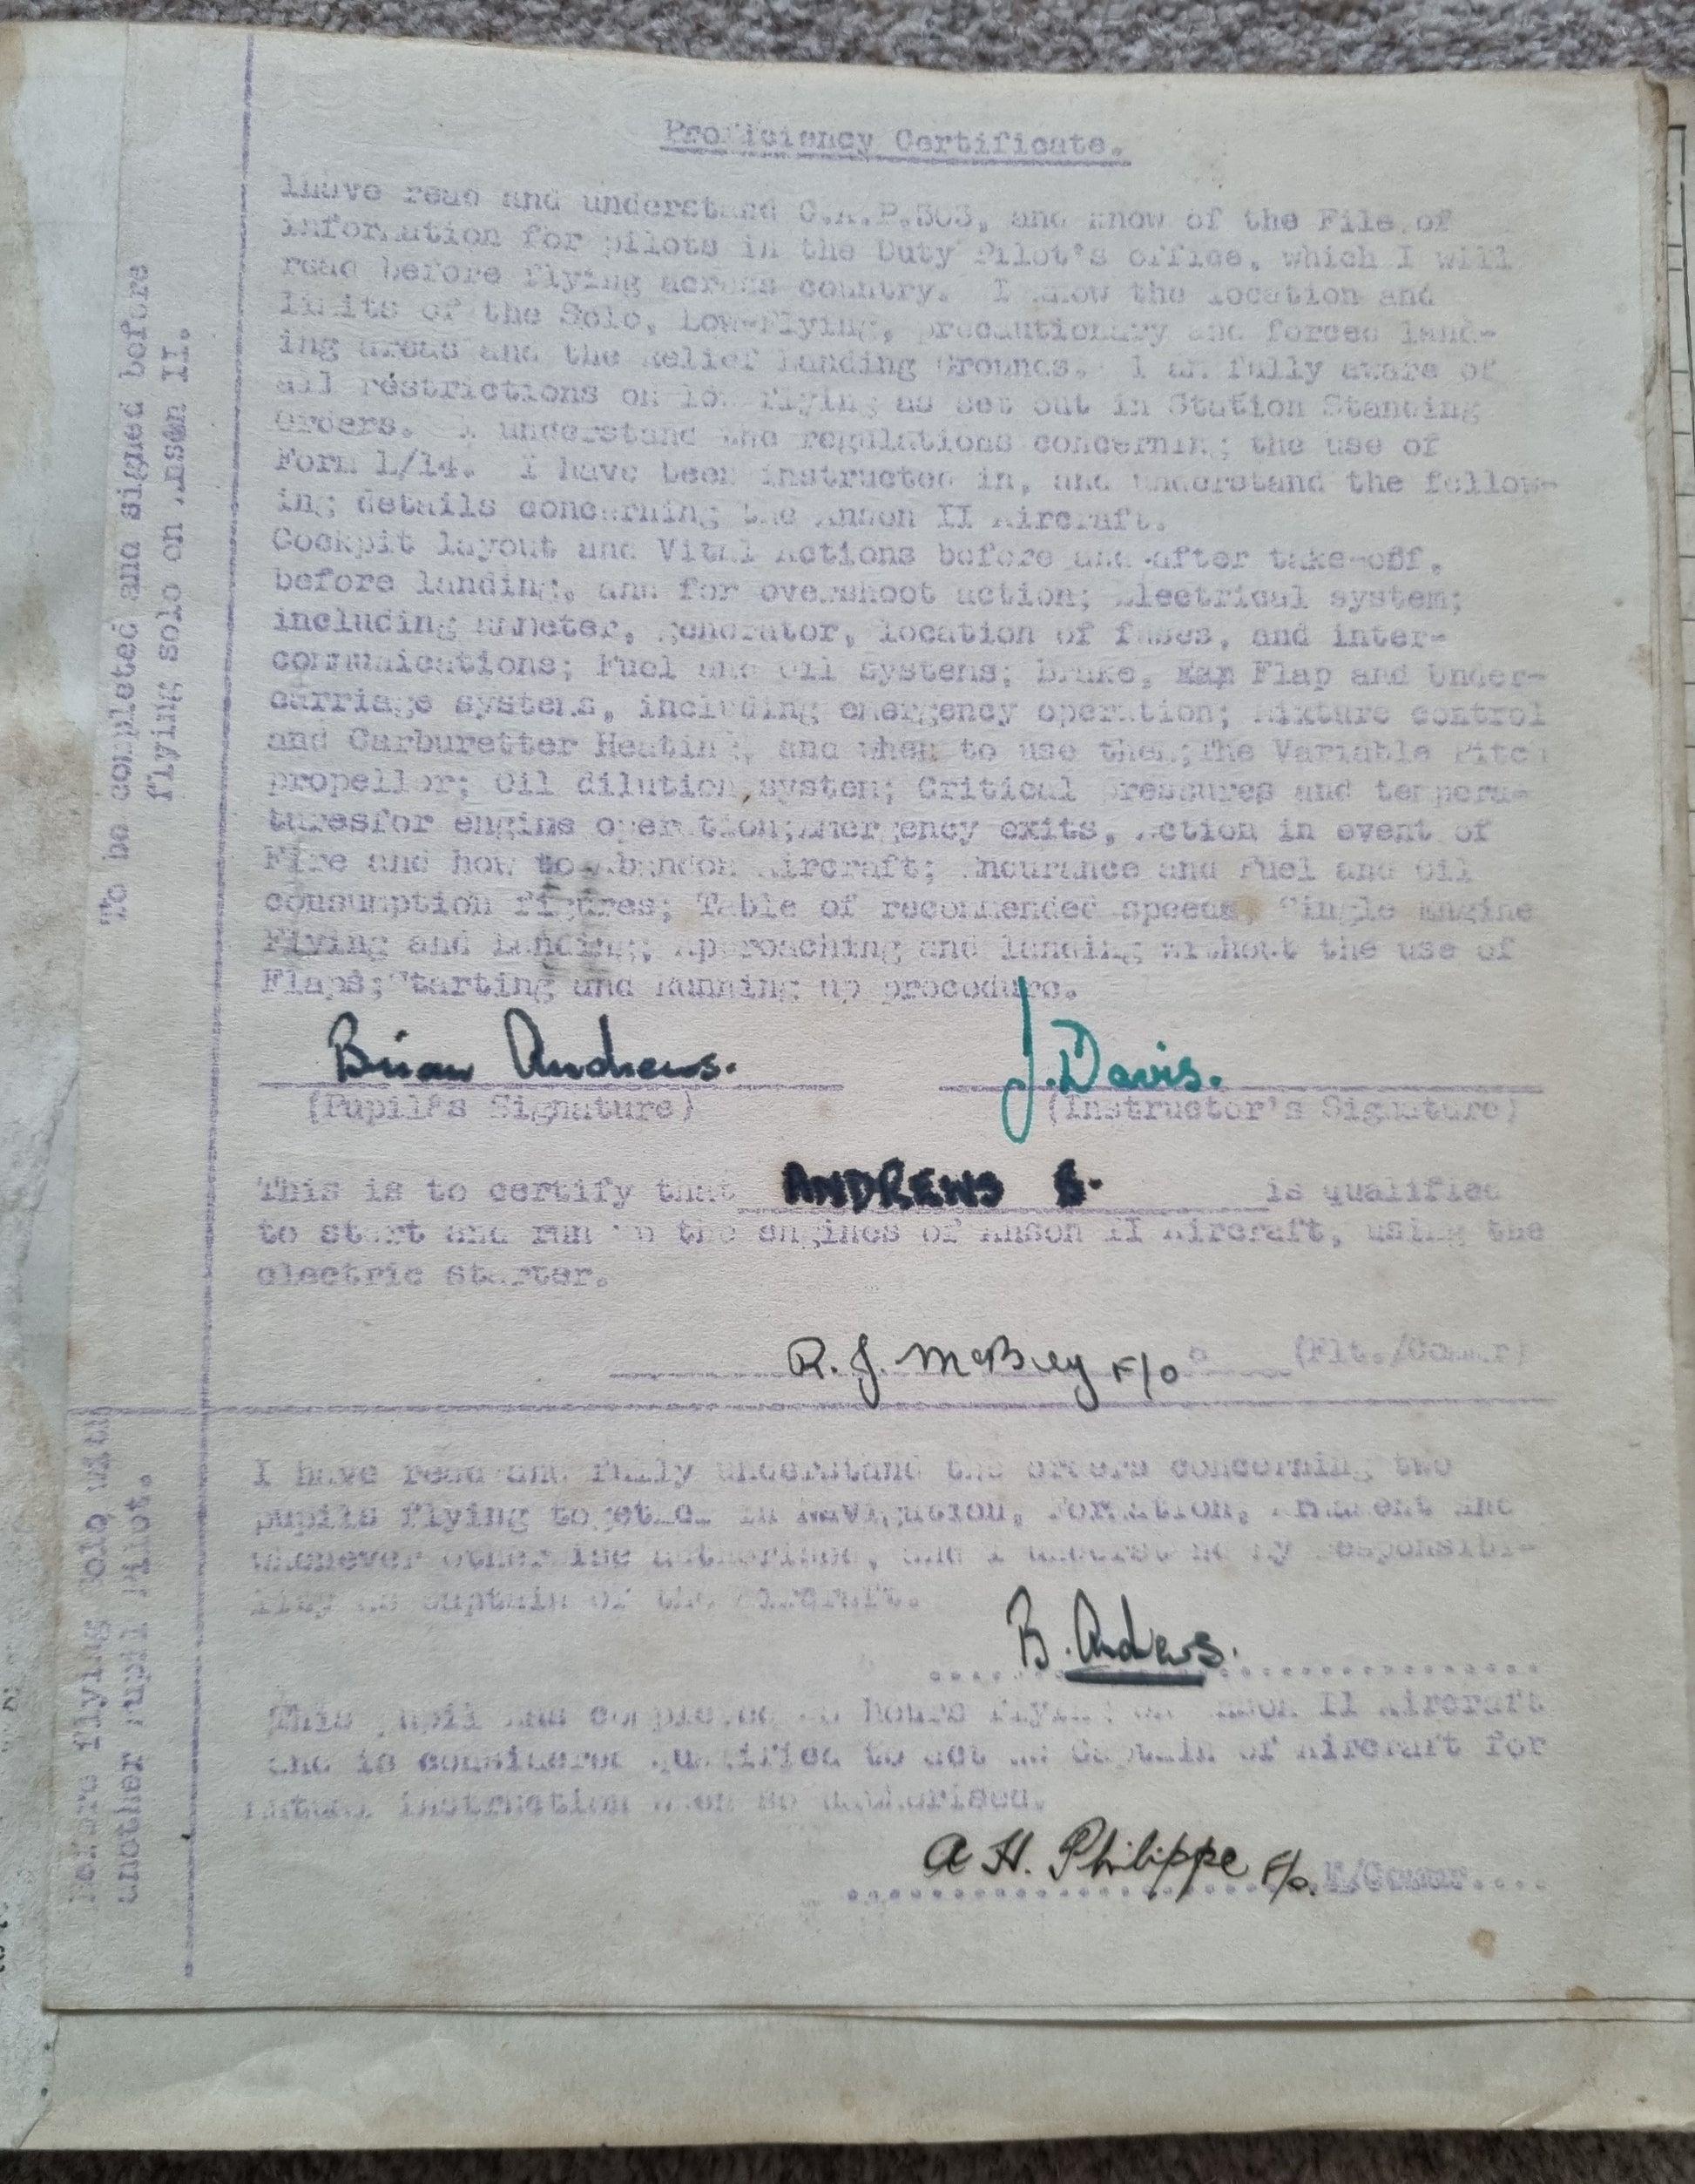 Proficiency Certificate.
To be completed and signed before
flying solo on Anson II.
Ihave read and understand C.A.P.303, and know of the File of
information for pilots in the Duty Pilot's office, which I will
read before flying across country. I know the location and
limits of the Solo, Low-Flying, precautionary and forced land-
ing areas and the Relief Landing Grounds. I am fully aware of
all restrictions on low flying as set out in Station Standing
Orders. I understand the regulations concerning the use of
Form 1/14. I have been instructed in, and understand the follow-
ing details concerning the Anson II Aircraft.
Cockpit layout and Vital Actions before and after take-off,
before landing, and for overshoot action; Electrical system;
including ammeter, generator, location of fuses, and inter-
communications; Fuel and Oil systems; Brake, Flap and Under-
carriage systems, including emergency operation; Mixture control
and Carburetter Heating, and when to use them;The Variable Pitch
propellor; Oil dilution system; Critical pressures and tempera-
turesfor engine operation;Emergency exits, Action in event of
Fire and how to Abandon Aircraft; Endurance and Fuel and Oil
consumption figures; Table of recommended speeds, Single Engine
Flying and Landing; Approaching and landing without the use of
Flaps; Starting and Running up procedure.
Brian Andrews. J. Davis.
(Pupil's Signature) (Instructor's Signature)
This is to certify that ANDREWS B. is qualified
to start and run up the engines of Anson II Aircraft, using the
electric starter.
R. J. McBey F/O (Flt./Commr)
Before flying solo with
another Pupil Pilot.
I have read and fully understand the orders concerning two
pupils flying together in Navigation, Formation, Armament and
whenever otherwise authorised, and I understand my responsibi-
lity as Captain of the Aircraft.
B. Andrews.
This pupil has completed hours flying on Anson II Aircraft
and is considered qualified to act as Captain of Aircraft for
mutual instruction when so authorised.
A H. Philippe F/O. F/Commr....